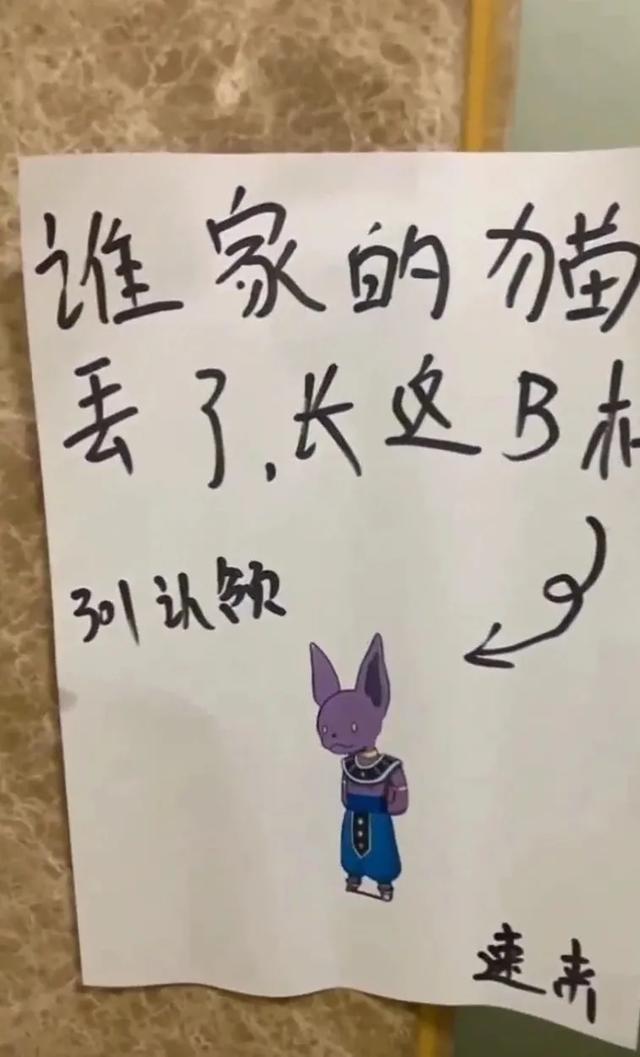 谁家的猫
丢了,长这B
301认领
速来